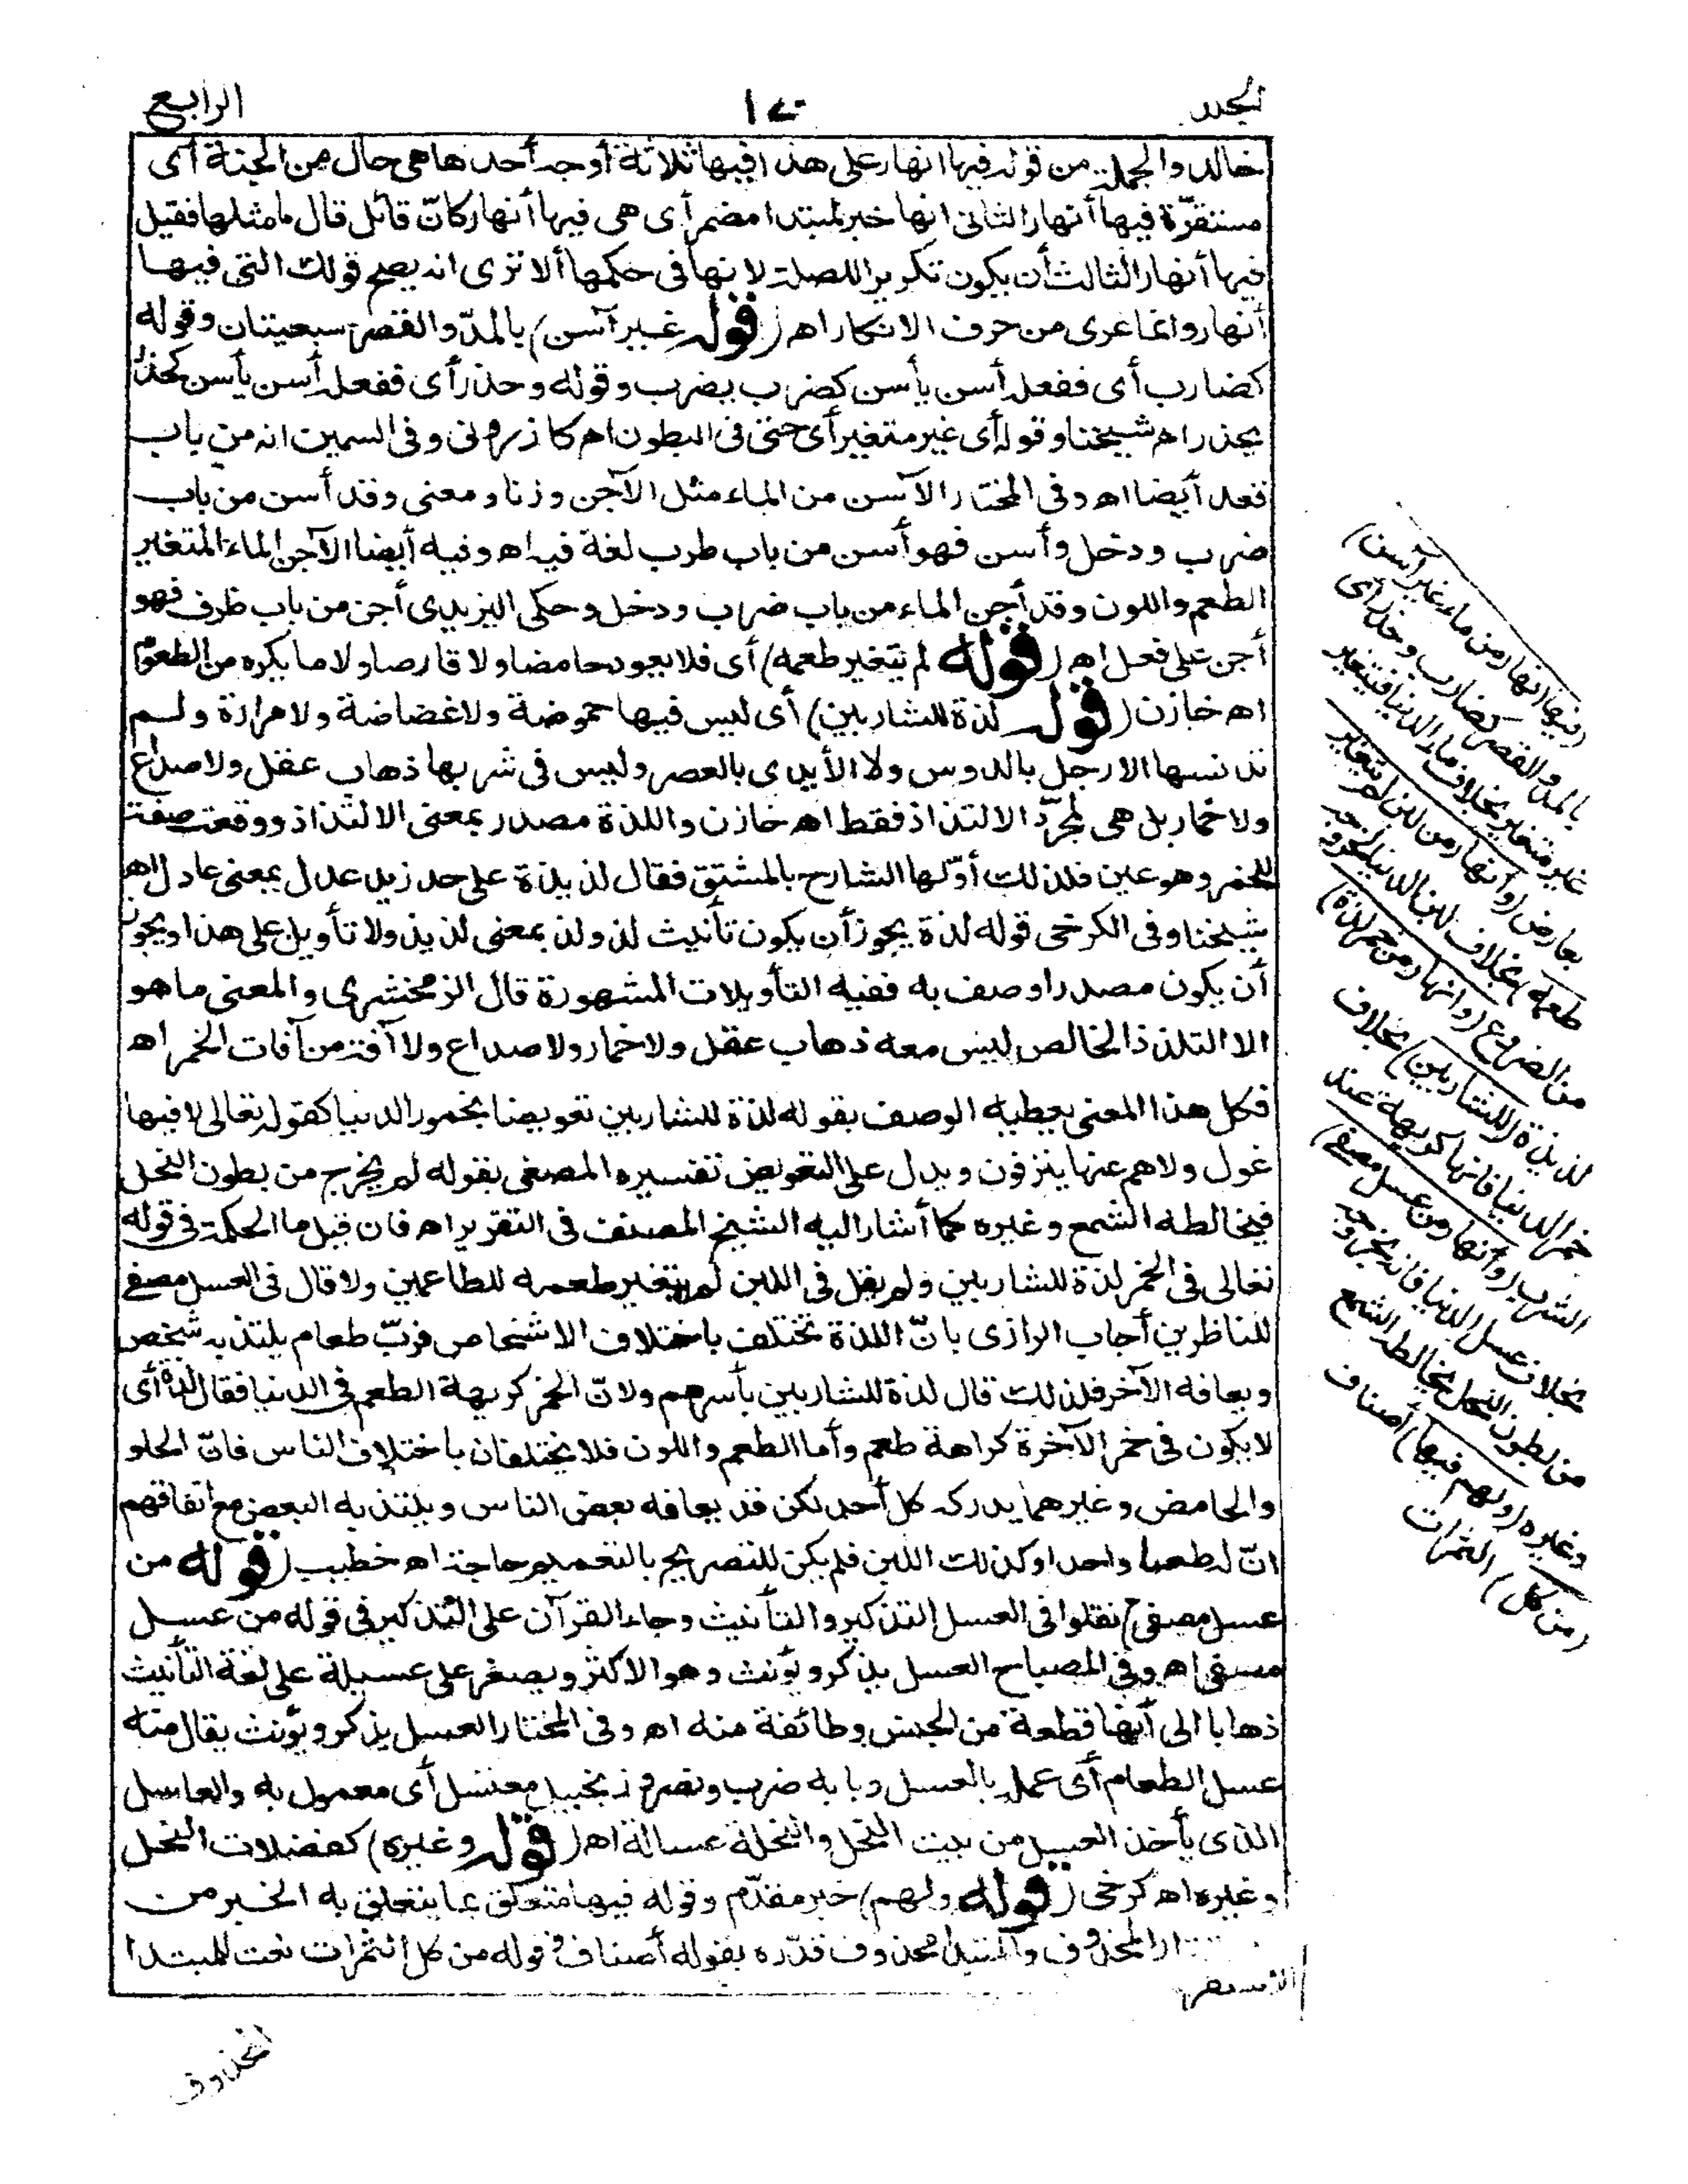 الجلد ١٧٠ الرابع
خالد والجملة من قوله فيها انهار على هذا فيها ثلاثة أوجه أحدها هى حال من الجنة أى
مستقرّة فيها أنهار الثانى انها خبر لمبتدا مضمر أى هى فيها أنهار كانّ قائل قال ما مثلها فقيل
فيها أنهار الثالث أن يكون تكريرا للصلة لانها فى حكمها ألا ترى انه يصح قولك التى فيها
أنهار وانما عرى من حرف الانكار اهـ (قوله غير آسن) بالمدّ والقصر سبعيتان وقوله
كضارب أى ففعله أسن يأسن كضرب يضرب وقوله وحذر أى ففعله أسن يأسن كحذر
يحذر اهـ شيخنا وقوله أى غير متغير أى حتى فى البطون اهـ كازرونى وفى السمين انه من باب
قعد أيضا اهـ وفى المختار الآسن من الماء مثل الآجن وزنا ومعنى وقد أسن من باب
ضرب ودخل وأسن فهو أسن من باب طرب لغة فيه اهـ وفيه أيضا الآجن الماء المتغير
الطعم واللون وقد أجن الماء من باب ضرب ودخل وحكى اليزيدى أجن من باب ظرف فهو
أجن على فعل اهـ (قوله لم يتغير طعمه) أى فلا يعود حامضا ولا قارصا ولا ما يكره من الطعوم
اهـ خازن (قوله لذة للشاربين) أى ليس فيها حموضة ولا غضاضة ولا مرارة ولم
تدنسها الارجل بالدوس ولا الأيدى بالعصر وليس فى شربها ذهاب عقل ولا صداع
ولا خمار بل هى لمجرّد الالتذاذ فقط اهـ خازن واللذة مصدر بمعنى الالتذاذ ووقعت صفة
للخمر وهو عين فلذلك أوّلها الشارح بالمشتق فقال لذيذة على حد زيد عدل بمعنى عادل اهـ
شيخنا وفى الكرخى قوله لذة يجوز أن يكون تأنيث لذ ولذ بمعنى لذيذ ولا تأويل على هذا ويجوز
أن يكون مصدرا وصف به ففيه التأويلات المشهورة قال الزمخشرى والمعنى ما هو
الا التلذذ الخالص ليس معه ذهاب عقل ولا خمار ولا صداع ولا آفة من آفات الخمر اهـ
فكل هذا المعنى يعطيه الوصف بقوله لذة للشاربين تعويضا بخمور الدنيا كقوله تعالى لا فيها
غول ولا هم عنها ينزفون ويدل على التعويض تفسيره المصفى بقوله لم يخرج من بطون النحل
فيخالطه الشمع وغيره كما أشار اليه الشيخ المصنف فى التقرير اهـ فان قيل ما الحكمة فى قوله
تعالى فى الخمر لذة للشاربين ولم يقل فى اللبن لم يتغير طعمه للطاعمين ولا قال فى العسل مصفى
للناظرين أجاب الرازى بانّ اللذة تختلف باختلاف الاشخاص فربّ طعام يلتذ به شخص
ويعافه الآخر فلذلك قال لذة للشاربين بأسرهم ولانّ الخمر كريهة الطعم فى الدنيا فقال لذة أى
لا يكون فى خمر الآخرة كراهة طعم وأما الطعم واللون فلا يختلفان باختلاف الناس فانّ الحلو
والحامض وغيرهما يدركه كل أحد لكن قد يعافه بعض الناس ويلتذ به البعض مع اتفاقهم
انّ له طعما واحدا وكذلك اللبن فلم يكن للتصريح بالتعميم حاجة اهـ خطيب (قوله من
عسل مصفى) نقلوا فى العسل التذكير والتأنيث وجاء القرآن على التذكير فى قوله من عسل
مصفى اهـ وفى المصباح العسل يذكر ويؤنث وهو الاكثر ويصغر على عسيلة على لغة التأنيث
ذهابا الى أنها قطعة من الجنس وطائفة منه اهـ وفى المختار العسل يذكر ويؤنث يقال منه
عسل الطعام أى عمله بالعسل وبابه ضرب ونصر وزنجبيل معسل أى معمول به والعاسل
الذى يأخذ العسل من بيت النحل والنحلة عسالة اهـ (قوله وغيره) كفضلات النحل
وغيره اهـ كرخى (قوله ولهم) خبر مقدّم وقوله فيها متعلق بما يتعلق به الخبر من
الاستقرار المحذوف والمبتدا محذوف قدّره بقوله أصناف وقوله من كل الثمرات نعت للمبتدا
المحذوف
(فيها انهار من ماء غير آسن)
بالمد والقصر كضارب وحذر أى
غير متغير بخلاف ماء الدنيا فيتغير
بعارض (وأنهار من لبن لم يتغير
طعمه) بخلاف لبن الدنيا لخروجه
من الضروع (وانهار من خمر لذة)
لذيذة (للشاربين) بخلاف
خمر الدنيا فانها كريهة عند
الشرب (وأنهار من عسل مصفى)
بخلاف عسل الدنيا فانه بخروجه
من بطون النحل يخالطه الشمع
وغيره (ولهم فيها) أصناف
(من كل) الثمرات